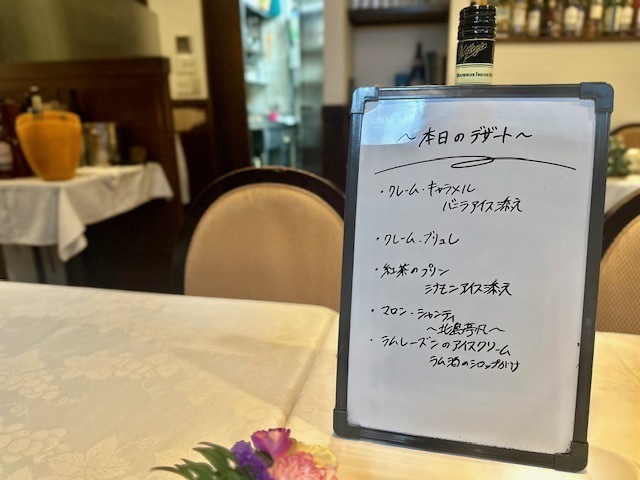 ～本日のデザート～
・クレーム・キャラメル
バニラアイス添え
・クレーム・ブリュレ
・紅茶のプリン
シナモンアイス添え
・マロン・シャンティ
・ラムレーズンのアイスクリーム
ラム酒のシロップがけ